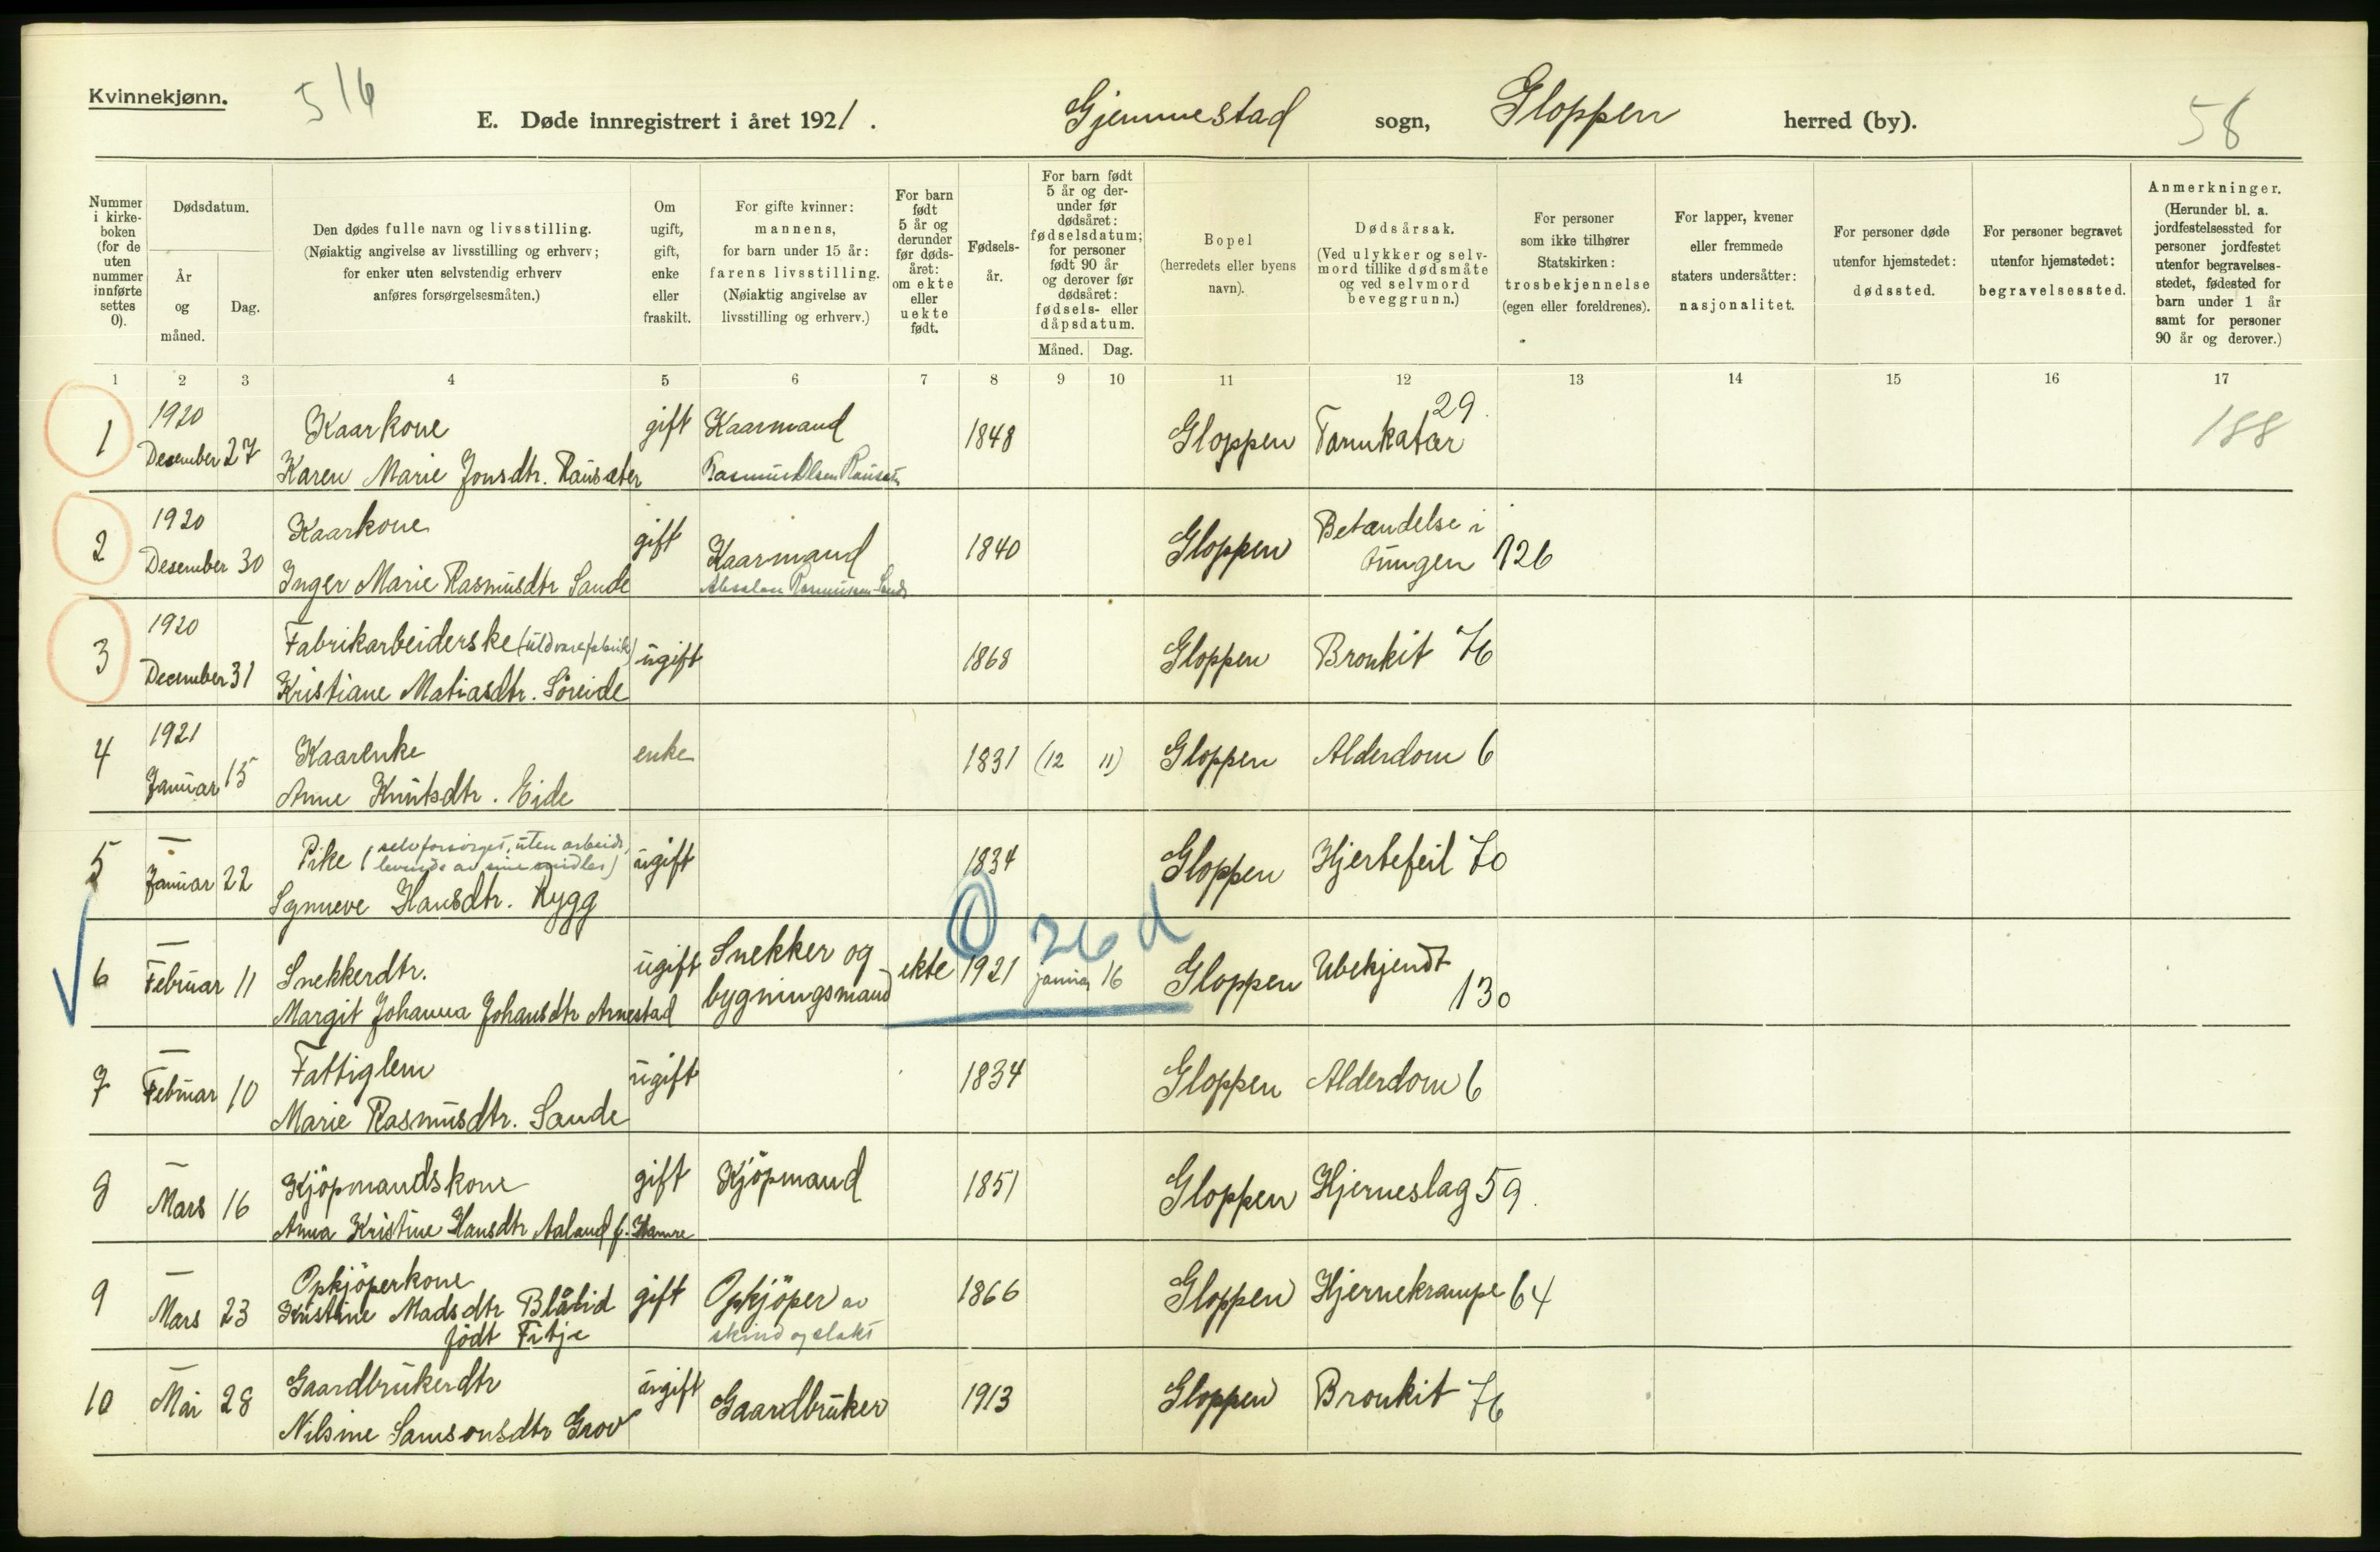 Kvinnekjønn.
516
E. Døde innregistrert i året 1921.
Gjemmestad sogn, Gloppen herred (by).
58
Nummer i kirkeboken (for de uten nummer innførte settes 0).
Dødsdatum.
År og måned.
Dag.
Den dødes fulle navn og livsstilling.
(Nøiaktig angivelse av livsstilling og erhverv;
for enker uten selvstendig erhverv
anføres forsørgelsesmåten.)
Om ugift, gift, enke eller fraskilt.
For gifte kvinner:
mannens,
for barn under 15 år:
farens livsstilling.
(Nøiaktig angivelse av
livsstilling og erhverv.)
For barn født 5 år og derunder før dødsåret: om ekte eller uekte født.
Fødselsår.
For barn født 5 år og derunder før dødsåret: fødselsdatum; for personer født 90 år og derover før dødsåret: fødsels- eller dåpsdatum.
Måned. Dag.
Bopel
(herredets eller byens
navn).
Dødsårsak.
(Ved ulykker og selvmord tillike dødsmåte
og ved selvmord
beveggrunn.)
For personer
som ikke tilhører
Statskirken:
trosbekjennelse
(egen eller foreldrenes).
For lapper, kvener
eller fremmede
staters undersåtter:
nasjonalitet.
For personer døde
utenfor hjemstedet:
dødssted.
For personer begravet
utenfor hjemstedet:
begravelsessted.
Anmerkninger.
(Herunder bl. a.
jordfestelsessted for
personer jordfestet
utenfor begravelsesstedet, fødested for
barn under 1 år
samt for personer
90 år og derover.)
1 2 3 4 5 6 7 8 9 10 11 12 13 14 15 16 17
1 1920 Desember 27 Kaarkone gift Kaarmand 1848 Gloppen Tarmkatar 29. 188
Karen Marie Jonsdtr. Rausæter Rasmus Olsen
2 1920 Desember 30 Kaarkone gift Kaarmand 1840 Gloppen Betændelse i
Inger Marie Rasmusdtr Sande Absalon Rasmussen Sande tungen 126
3 1920 December 31 Fabrikarbeiderske (uldvarefabrik) ugift 1868 Gloppen Bronkit 76
Kristiane Matiasdtr. Söreide
4 1921 Januar 15 Kaarenke enke 1831 (12 11) Gloppen Alderdom 6
Anne Knutsdtr. Eide
5 — Januar 22 Pike (selvforsörget, uten arbeide, ugift 1834 Gloppen Hjertefeil 70
levende av sine midler)
Synneve Hansdtr. Rygg
1 26 d
6 — Februar 11 Snekkerdtr. ugift Snekker og ekte 1921 januar 16 Gloppen Ubekjendt
Margit Johanna Johansdtr Arnestad bygningsmand 130
7 — Februar 10 Fattiglem ugift 1834 Gloppen Alderdom 6
Marie Rasmusdtr. Sande
8 — Mars 16 Kjöpmandskone gift Kjöpmand 1851 Gloppen Hjerneslag 59.
Anna Kristine Hansdtr Aaland f. Hamre
9 — Mars 23 Opkjöperkone gift Opkjöper av 1866 Gloppen Hjernekrampe 64
Kristine Madsdtr Blålid skind og slakt
födt Fitje
10 — Mai 28 Gaardbrukerdtr ugift Gaardbruker 1913 Gloppen Bronkit 76
Nilsine Samsonsdtr Grov